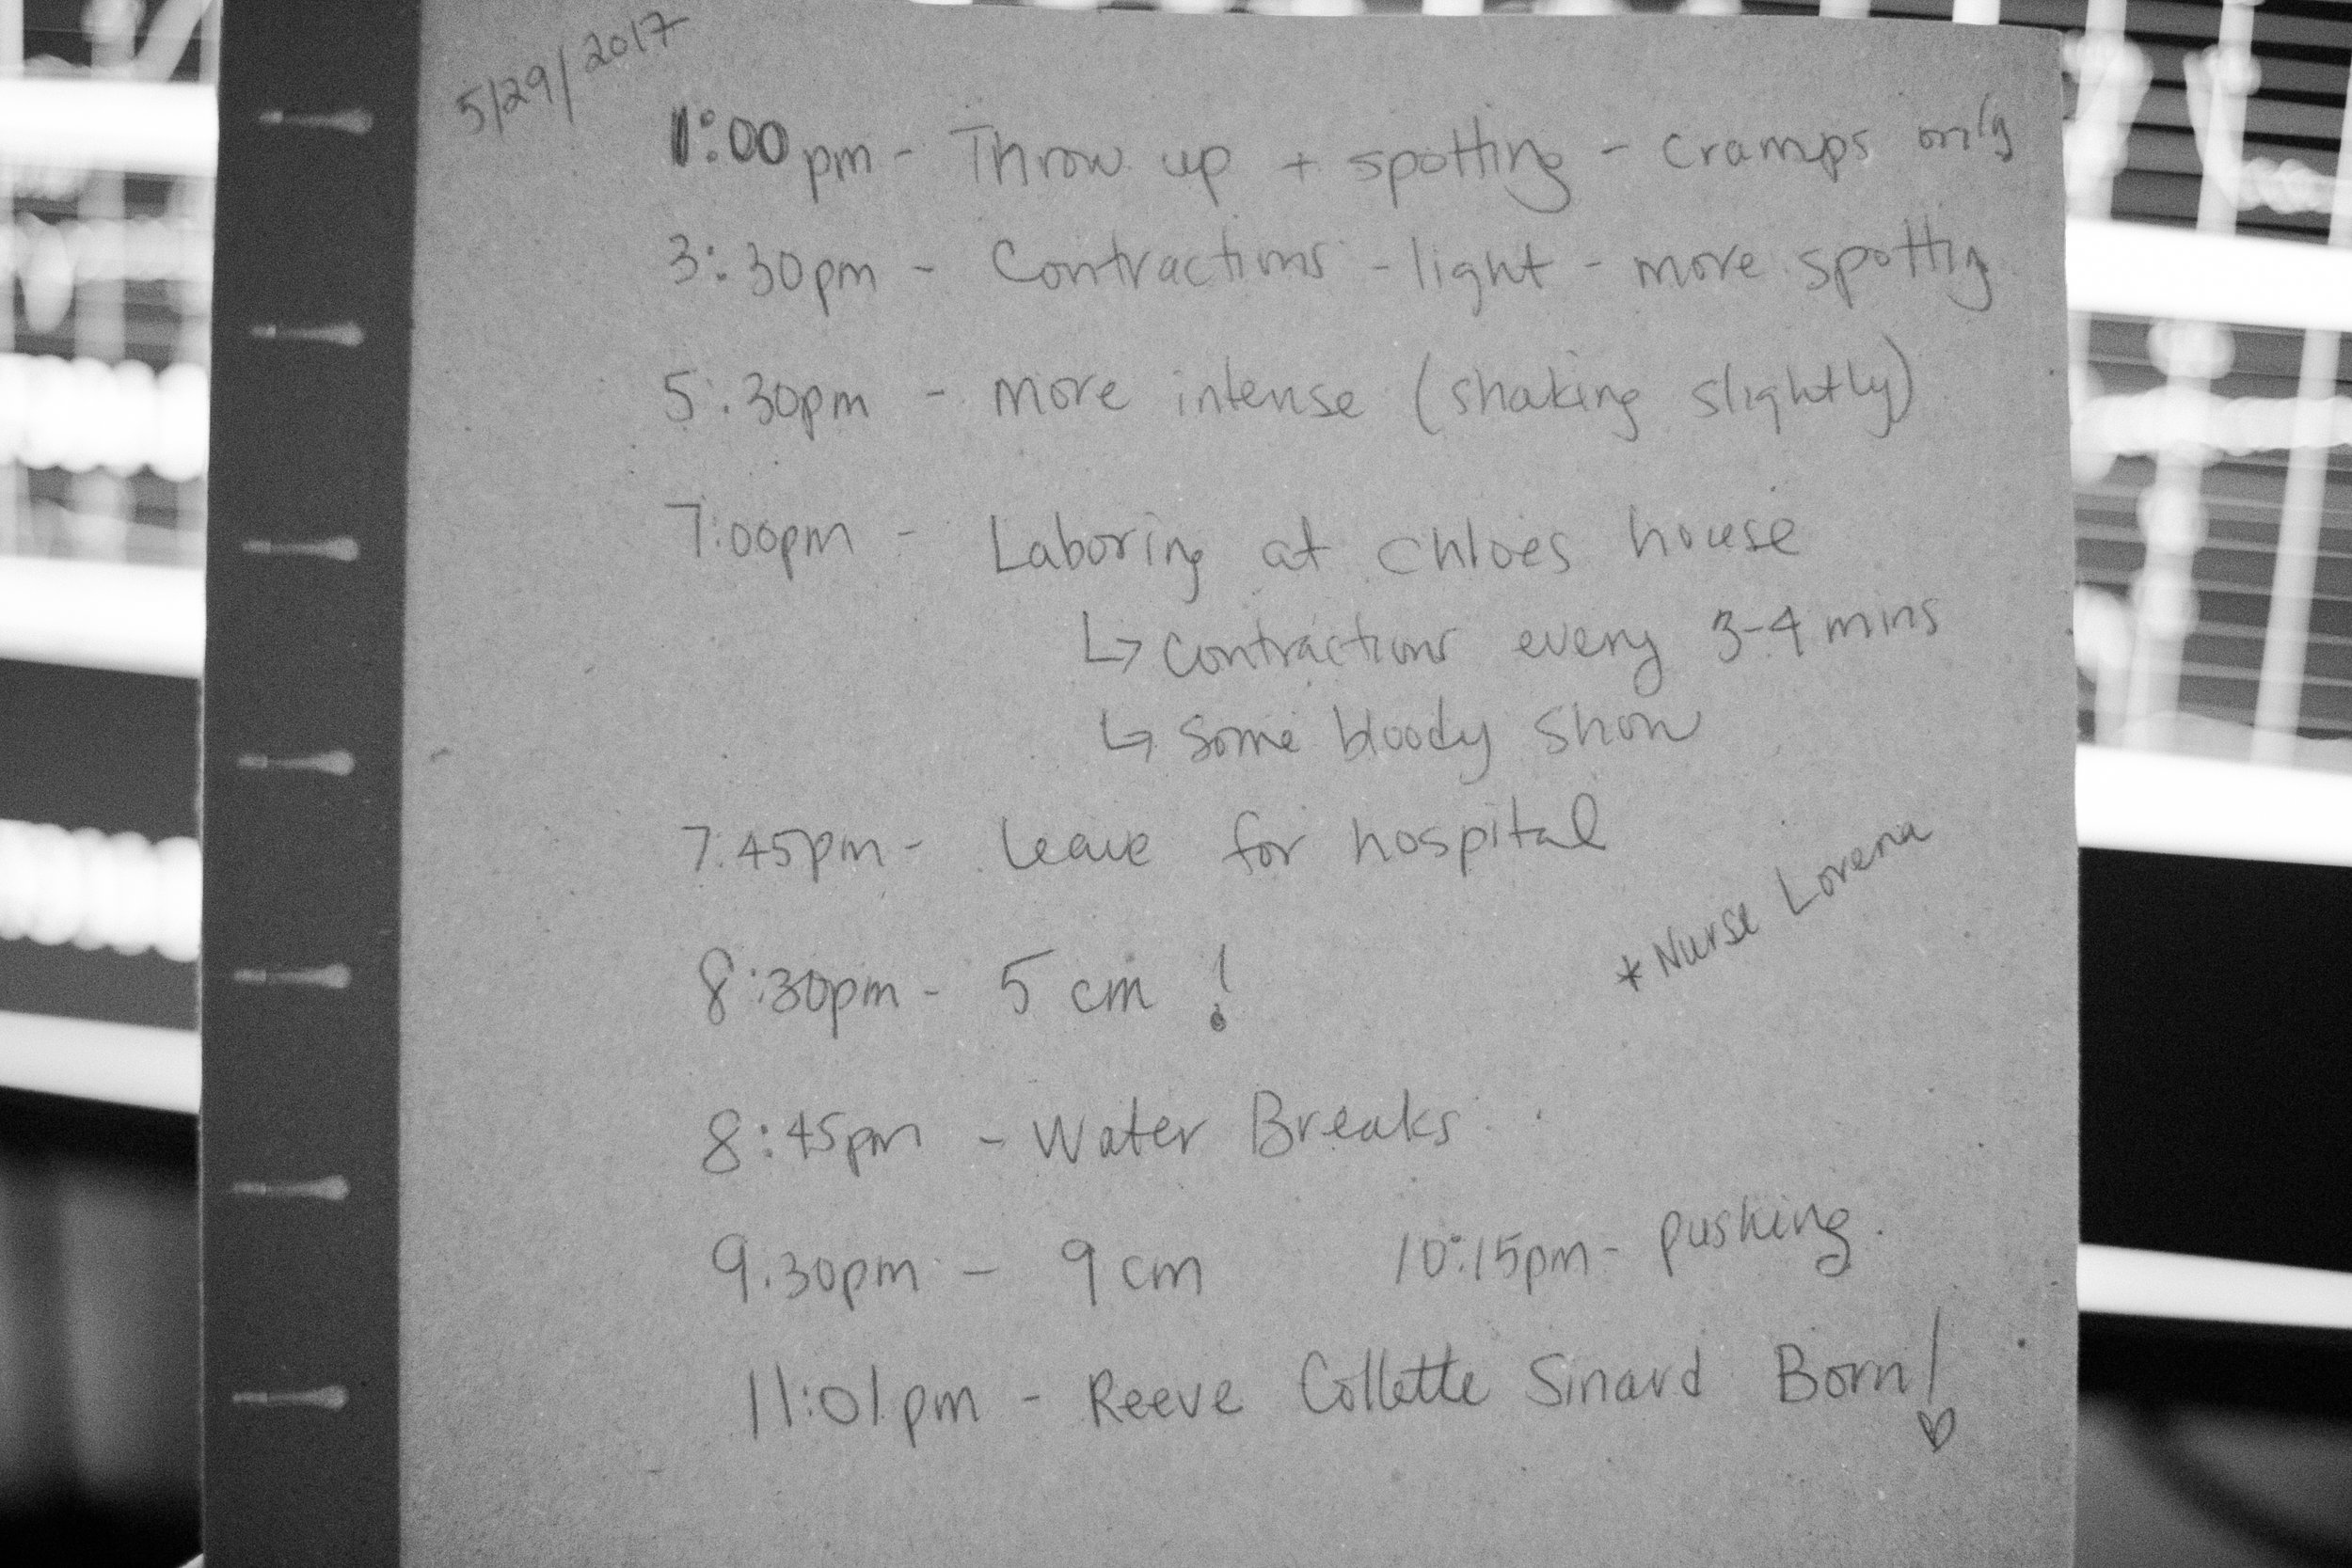 5/29/2017
1:00pm - Throw up + spotting - cramps only
3:30pm - Contractions - light - more spotting
5:30pm - more intense (shaking slightly)
7:00pm - Laboring at chloes house
↳ contractions every 3-4 mins
↳ some bloody show
7:45pm - leave for hospital
* Nurse Lorena
8:30pm - 5 cm !
8:45pm - Water Breaks
9:30pm - 9 cm 10:15pm - pushing.
11:01pm - Reeve Collette Sinard Born! ♡